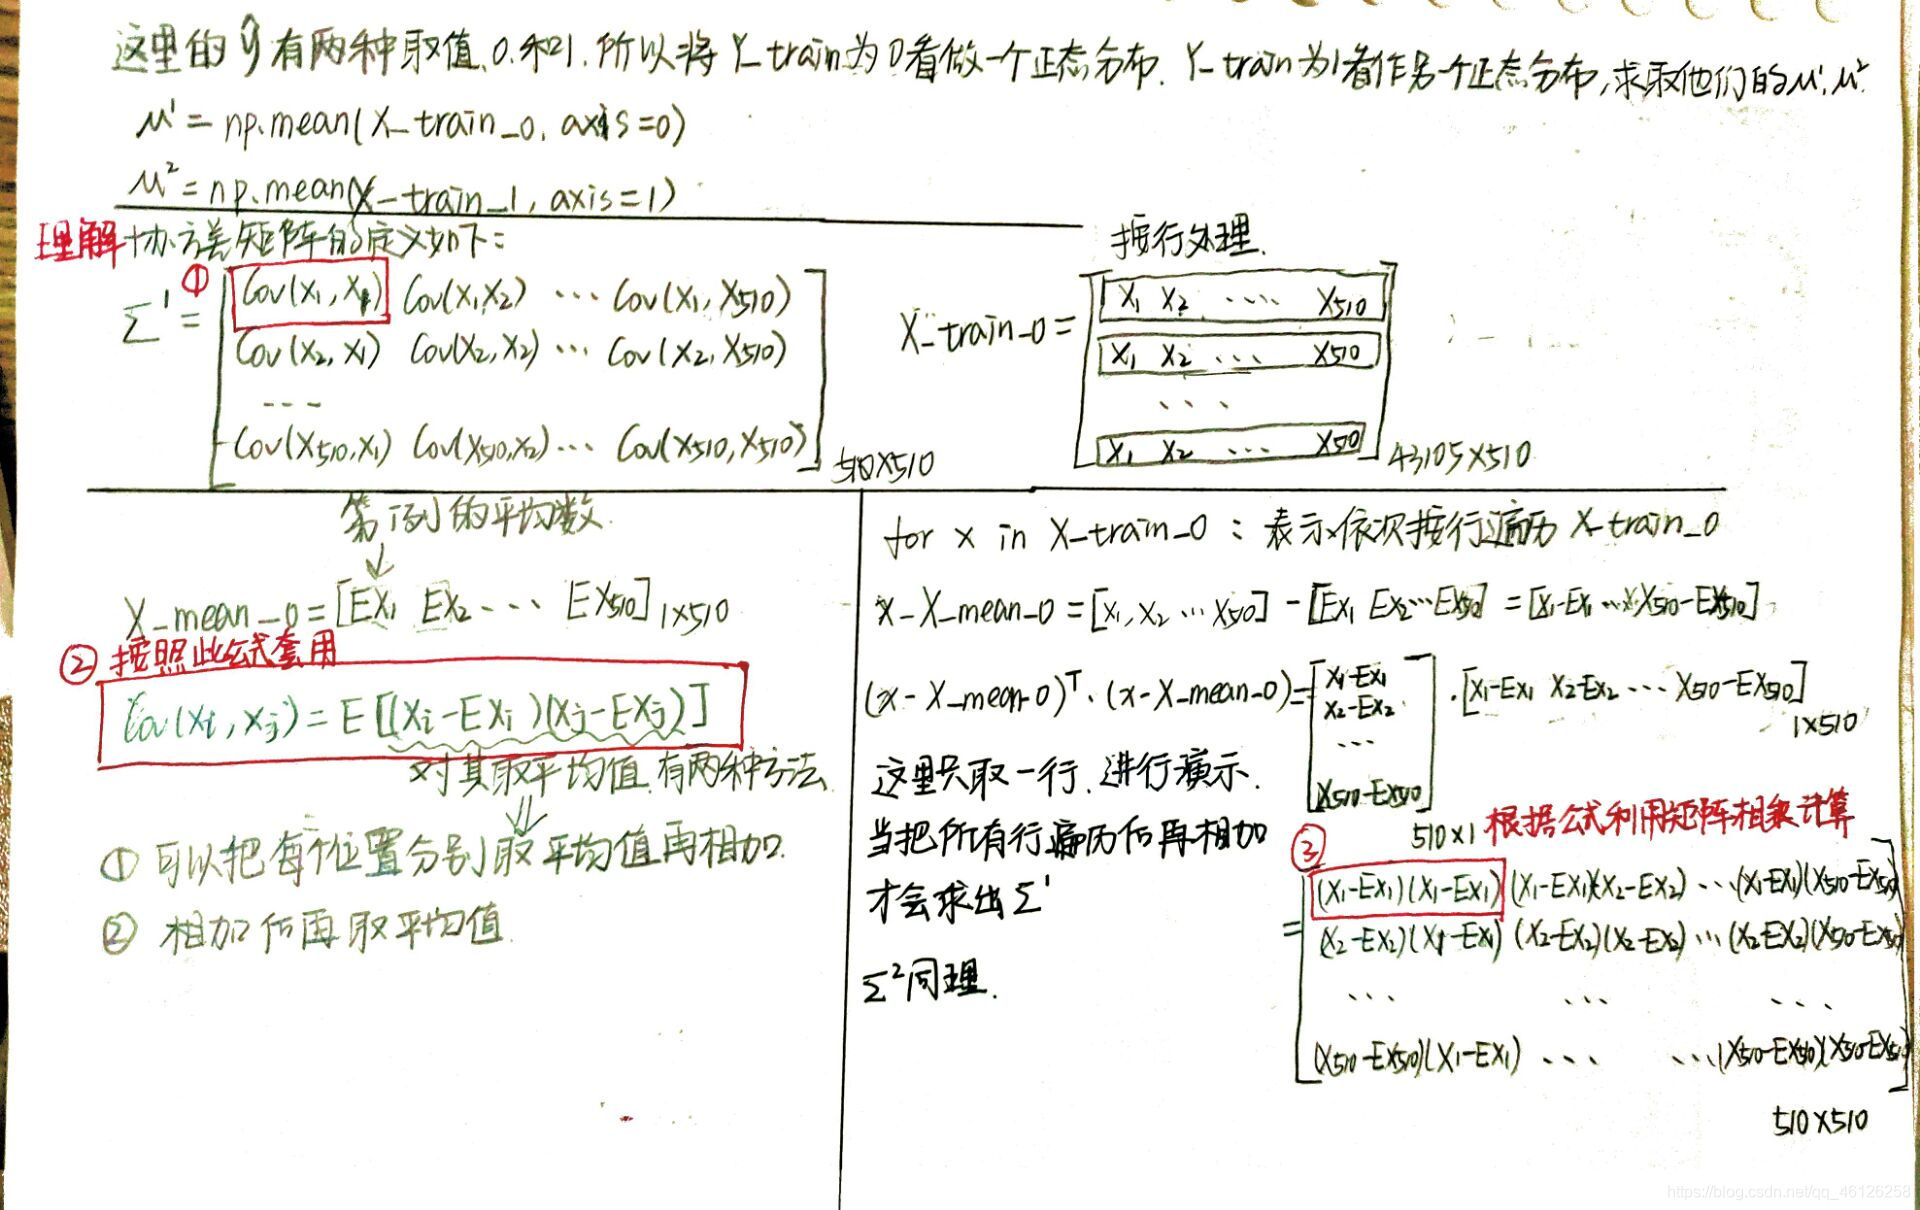 这里的ŷ有两种取值,0.和1.所以将Y_train为0看做一个正态分布. Y_train为1看作另一个正态分布,求取他们的μ¹,μ².
μ¹ = np.mean(X_train_0, axis=0)
μ² = np.mean(X_train_1, axis=1)
理解 协方差矩阵的定义如下:
①
Σ¹ =
Cov(X₁,X₁) Cov(X₁,X₂) ··· Cov(X₁,X₅₁₀)
Cov(X₂,X₁) Cov(X₂,X₂) ··· Cov(X₂,X₅₁₀)
····
Cov(X₅₁₀,X₁) Cov(X₅₁₀,X₂) ··· Cov(X₅₁₀,X₅₁₀)
510×510
按行处理.
X_train_0 =
X₁ X₂ ···· X₅₁₀
X₁ X₂ ··· X₅₁₀
···
X₁ X₂ ··· X₅₁₀
43105×510
第1列的平均数.
↓
X_mean_0 = [EX₁ EX₂ ··· EX₅₁₀] 1×510
② 按照此公式套用
Cov(Xi,Xj) = E[(Xi-EXi)(Xj-EXj)]
对其取平均值.有两种方法.
⇓
① 可以把每个位置分别取平均值再相加.
② 相加后再取平均值.
for x in X_train_0 : 表示依次按行遍历 X_train_0
x-X_mean_0 = [X₁,X₂ ··· X₅₁₀] - [EX₁ EX₂ ··· EX₅₁₀] = [X₁-EX₁ ··· X₅₁₀-EX₅₁₀]
(x-X_mean_0)ᵀ·(x-X_mean_0) =
X₁-EX₁
X₂-EX₂
···
X₅₁₀-EX₅₁₀
510×1
·[X₁-EX₁ X₂-EX₂ ··· X₅₁₀-EX₅₁₀]
1×510
这里只取一行,进行演示.
当把所有行遍历后再相加
才会求出Σ¹
Σ²同理.
③ 根据公式利用矩阵相乘计算
=
(X₁-EX₁)(X₁-EX₁) (X₁-EX₁)(X₂-EX₂) ···(X₁-EX₁)(X₅₁₀-EX₅₁₀)
(X₂-EX₂)(X₁-EX₁) (X₂-EX₂)(X₂-EX₂) ···(X₂-EX₂)(X₅₁₀-EX₅₁₀)
··· ··· ···
(X₅₁₀-EX₅₁₀)(X₁-EX₁) ··· ···(X₅₁₀-EX₅₁₀)(X₅₁₀-EX₅₁₀)
510×510
https://blog.csdn.net/qq_46126258